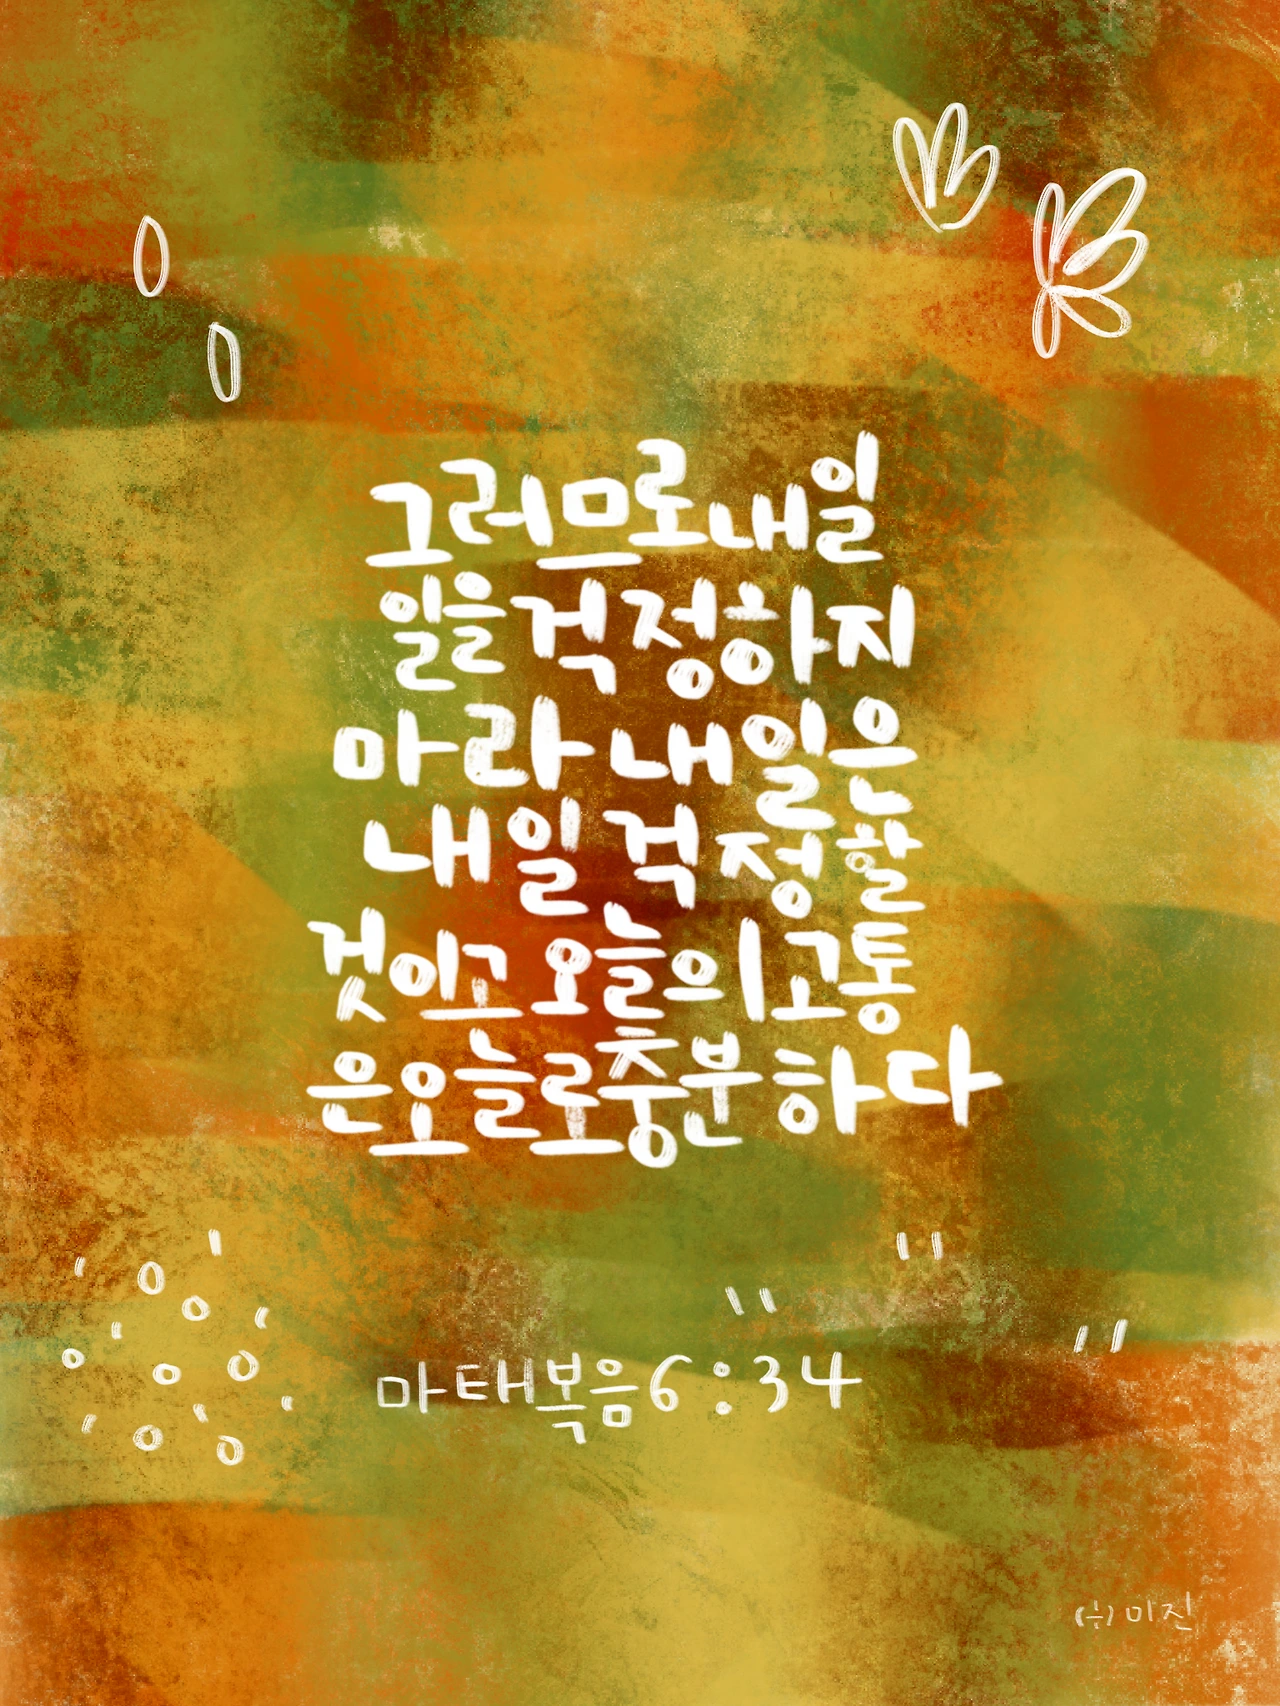 그러므로 내일
일을 걱정하지
마라 내일은
내일 걱정할
것이고 오늘의 고통
은 오늘로 충분하다
마태복음 6:34
(쉬)미진